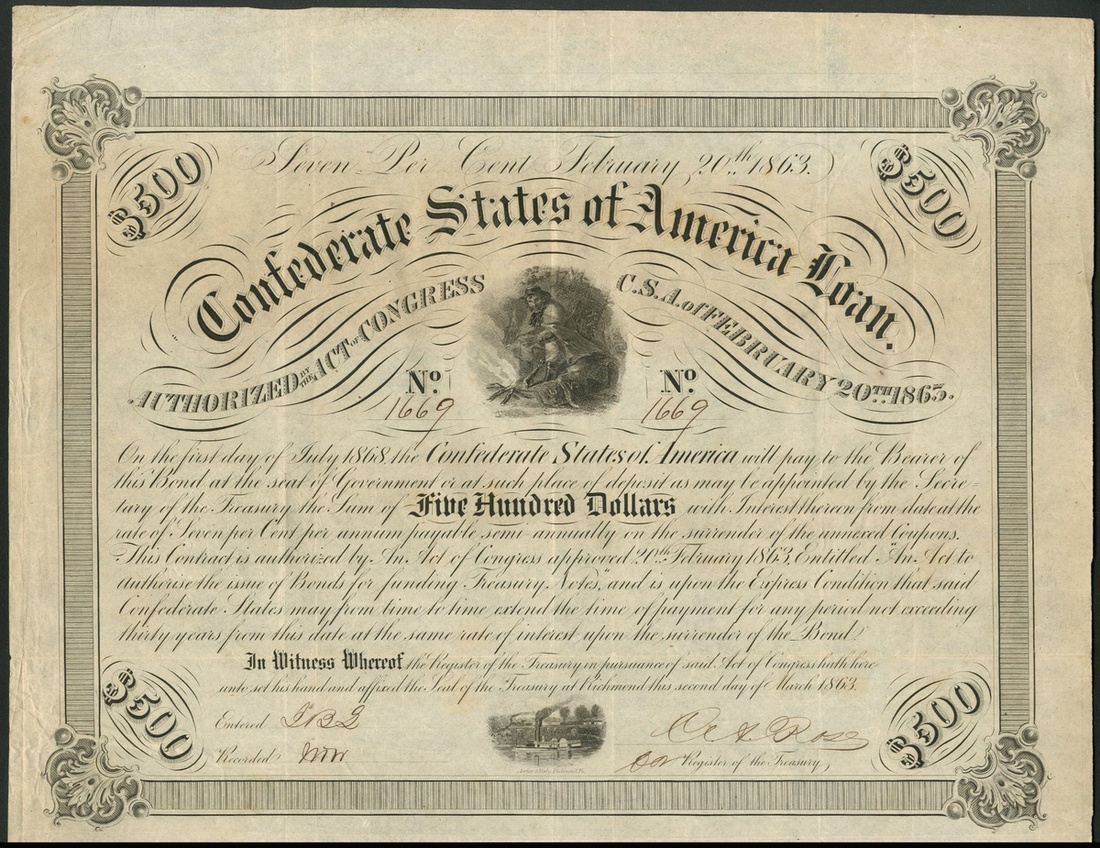 Seven Per Cent February 20th 1863.
$500
$500
Confederate States of America Loan.
AUTHORIZED BY THE ACT OF CONGRESS C.S.A. of FEBRUARY 20TH 1863.
No. No.
1669 1669
On the first day of July 1868, the Confederate States of America will pay to the Bearer of
this Bond at the seat of Government or at such place of deposit as may be appointed by the Secre-
tary of the Treasury, the Sum of Five Hundred Dollars with Interest thereon from date at the
rate of Seven per Cent per annum payable semi-annually on the surrender of the annexed Coupons.
This Contract is authorized by An Act of Congress approved 20th February 1863, Entitled "An Act to
authorise the issue of Bonds for funding Treasury Notes," and is upon the Express Condition that said
Confederate States may from time to time extend the time of payment for any period not exceeding
thirty years from this date at the same rate of interest upon the surrender of the Bond.
In Witness Whereof the Register of the Treasury, in pursuance of said Act of Congress hath here-
unto set his hand and affixed the Seal of the Treasury at Richmond this second day of March 1863.
$500
$500
Entered
Recorded
Rose
Register of the Treasury.
Richmond, Va.